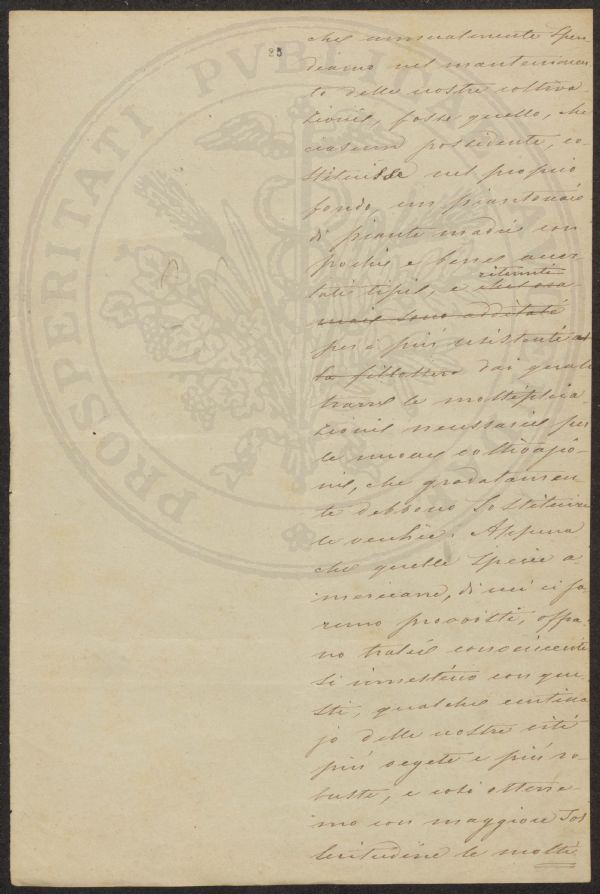 25
PROSPERITATI PVBLICAE AV
che annualmente spen
diamo nel mantenimen
to delle nostre coltiva
zioni, fosse quello, che
ciascun possidente, co-
stituisse nel proprio
fondo, un piantonaio
di piante madri con
pochi e bene accer
tati tipi, e
ritenuti
mais sono additate
per i più resistenti al
la fillossera dai quali
trarre le moltiplica
zioni necessarie per
le nuove coltivazio-
ni, che gradatamen
te debbono sostituire
le vecchie. Appena
che quelle specie a-
mericane, di cui ci fa
remo provvisti, offra
no tralci
si innestino con que
sti, qualche centina
jo delle nostre viti
più vegete e più ro-
buste, e così otterre
mo con maggiore sol
lecitudine le molti